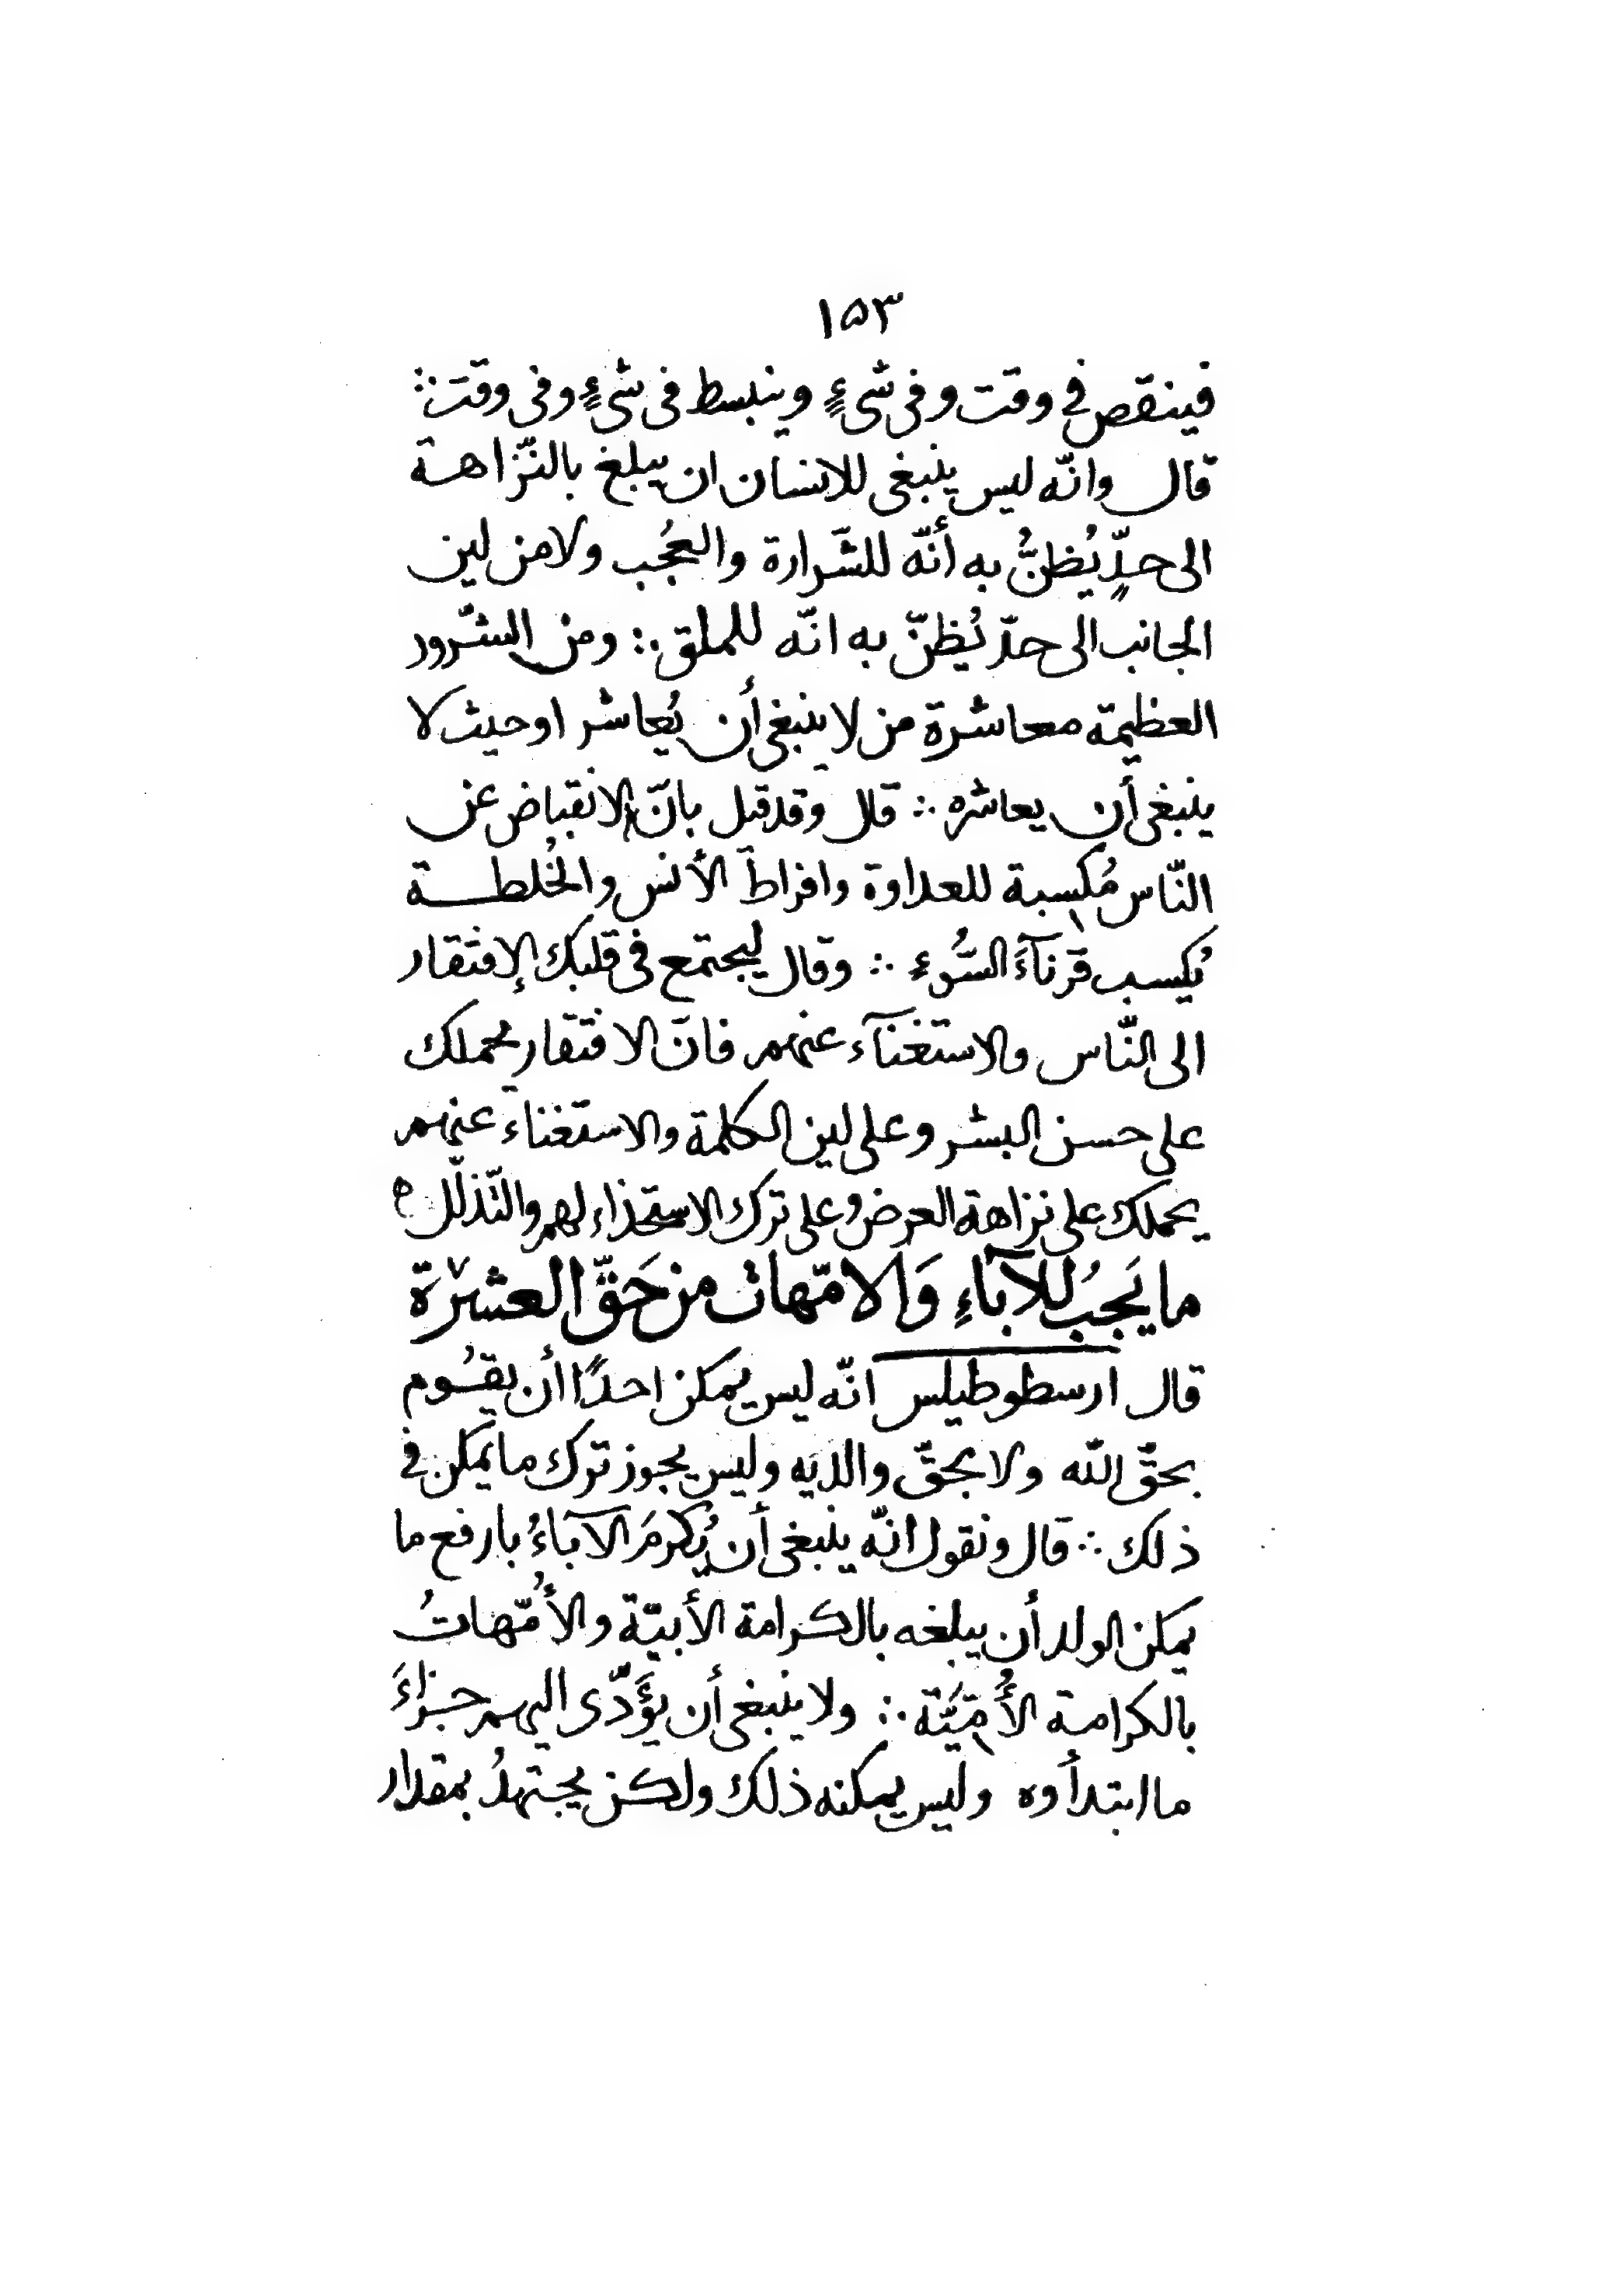 ١٥٣
فينقص في وقت وفى شىءٍ وينبسط فى شىءٍ وفى وقت ∴
قال وانّه ليس ينبغى للانسان ان يبلغ بالنّزاهة
الى حدٍّ يُظنُّ به أنّه للشّرارة والعُجب ولا من لين
الجانب الى حدّ يُظنّ به انّه للملق ∴ ومن الشّرور
العظيمة معاشرة من لا ينبغى أن يُعاشر او حيث لا
ينبغى أن يعاشره ∴ قال وقد قيل بانّ الانقباض عن
النّاس مُكسبة للعداوة وافراط الأنس والخُلطة
يُكسب قرنآءَ السُّوءِ ∴ وقال ليجتمع فى قلبك الإفتقار
الى النّاس والاستغنآء عنهم فانّ الافتقار يحملك
على حسن البشر وعلى لين الكلمة والاستغناء عنهم
يحملك على نزاهة العرض وعلى ترك الاستخذاء لهم والتّذلّل ه
ما يَجبُ للآباءِ وَالامّهات من حَقّ العشرة
قال ارسطوطيلس انّه ليس يمكن احدًا أن يقُوم
بحقّ اللّه ولا بحقّ والديه وليس يجوز ترك ما يمكن في
ذلك ∴ قال ونقول انّه ينبغى أن يُكرمَ الآباءُ بارفع ما
يمكن الولد أن يبلغه بالكرامة الأبيّة والأُمّهاتُ
بالكرامة الأُمّيَّة ∴ ولا ينبغى أن يؤَدّى اليهم جزاءَ
ما ابتدأوه وليس يمكنه ذلك ولكن يجتهدُ بمقدار